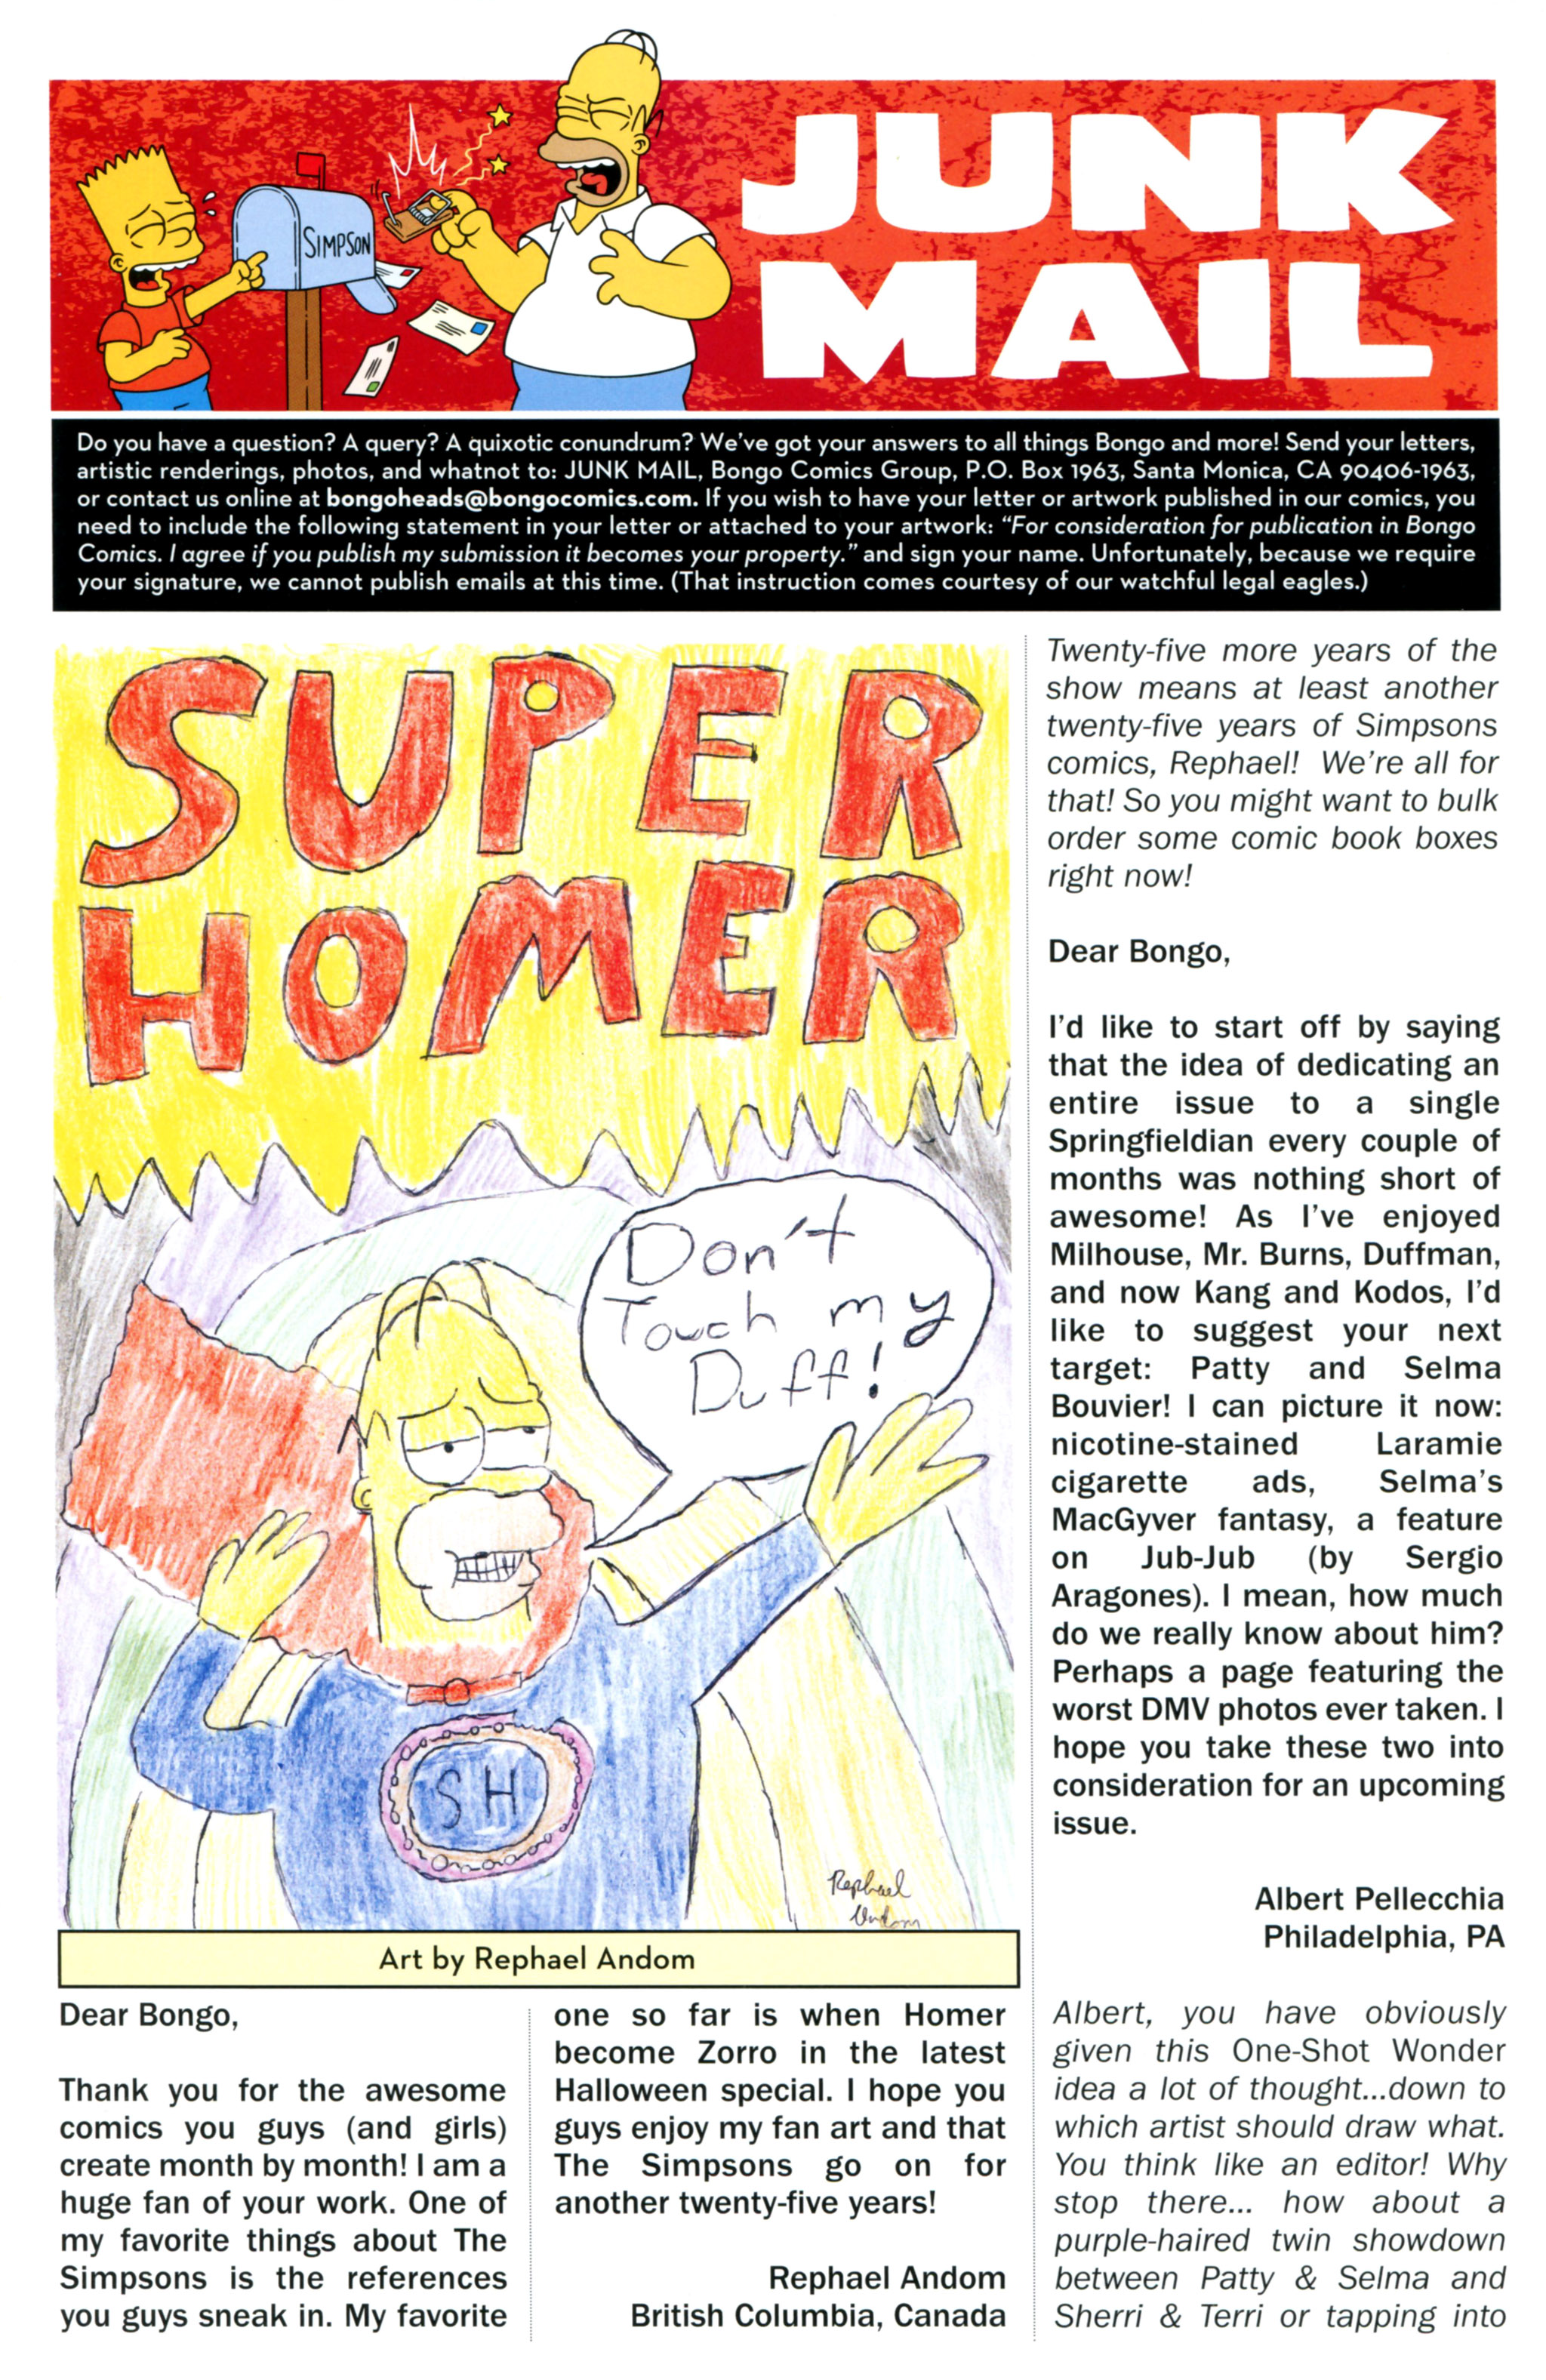 JUNK
MAIL
SIMPSON
Do you have a question? A query? A quixotic conundrum? We've got your answers to all things Bongo and more! Send your letters,
artistic renderings, photos, and whatnot to: JUNK MAIL, Bongo Comics Group, P.O. Box 1963, Santa Monica, CA 90406-1963,
or contact us online at bongoheads@bongocomics.com. If you wish to have your letter or artwork published in our comics, you
need to include the following statement in your letter or attached to your artwork: “For consideration for publication in Bongo
Comics. I agree if you publish my submission it becomes your property.” and sign your name. Unfortunately, because we require
your signature, we cannot publish emails at this time. (That instruction comes courtesy of our watchful legal eagles.)
SUPER
HOMER
Don't
Touch my
Duff!
SH
Rephael
Andom
Art by Rephael Andom
Dear Bongo,
Thank you for the awesome
comics you guys (and girls)
create month by month! I am a
huge fan of your work. One of
my favorite things about The
Simpsons is the references
you guys sneak in. My favorite
one so far is when Homer
become Zorro in the latest
Halloween special. I hope you
guys enjoy my fan art and that
The Simpsons go on for
another twenty-five years!
Rephael Andom
British Columbia, Canada
Twenty-five more years of the
show means at least another
twenty-five years of Simpsons
comics, Rephael! We're all for
that! So you might want to bulk
order some comic book boxes
right now!
Dear Bongo,
I'd like to start off by saying
that the idea of dedicating an
entire issue to a single
Springfieldian every couple of
months was nothing short of
awesome! As I've enjoyed
Milhouse, Mr. Burns, Duffman,
and now Kang and Kodos, I'd
like to suggest your next
target: Patty and Selma
Bouvier! I can picture it now:
nicotine-stained Laramie
cigarette ads, Selma's
MacGyver fantasy, a feature
on Jub-Jub (by Sergio
Aragones). I mean, how much
do we really know about him?
Perhaps a page featuring the
worst DMV photos ever taken. I
hope you take these two into
consideration for an upcoming
issue.
Albert Pellecchia
Philadelphia, PA
Albert, you have obviously
given this One-Shot Wonder
idea a lot of thought...down to
which artist should draw what.
You think like an editor! Why
stop there... how about a
purple-haired twin showdown
between Patty & Selma and
Sherri & Terri or tapping into